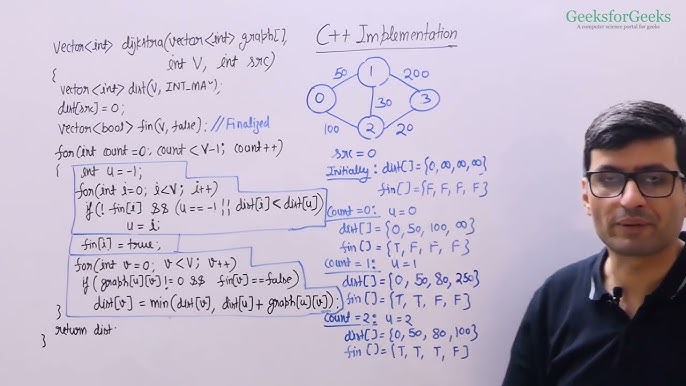 GeeksforGeeks
A computer science portal for geeks
vector<int> dijkstra(vector<int> graph[],
int V, int src)
{
vector<int> dist(V, INT_MAX);
dist[src]=0;
vector<bool> fin(V, false); //Finalized
for(int count=0; count < V-1; count++)
{
int u = -1;
for(int i=0; i<V; i++)
if(! fin[i] && (u == -1 || dist[i]<dist[u]))
u = i;
fin[i] = true;
for(int v=0; v < V; v++)
if(graph[u][v] != 0 && fin[v]==false)
dist[v] = min(dist[v], dist[u]+graph[u][v]);
}
return dist;
}
C++ Implementation
50
1
200
0
30
3
100
2
20
src = 0
Initially: dist[]={0,∞,∞,∞}
fin[]={F, F, F, F}
count=0: u=0
dist[]={0, 50, 100, ∞}
fin[]={T, F, F, F}
count=1: u=1
dist[]={0, 50, 80, 250}
fin[]={T, T, F, F}
count=2: u=2
dist[]={0, 50, 80, 100}
fin[]={T, T, T, F}